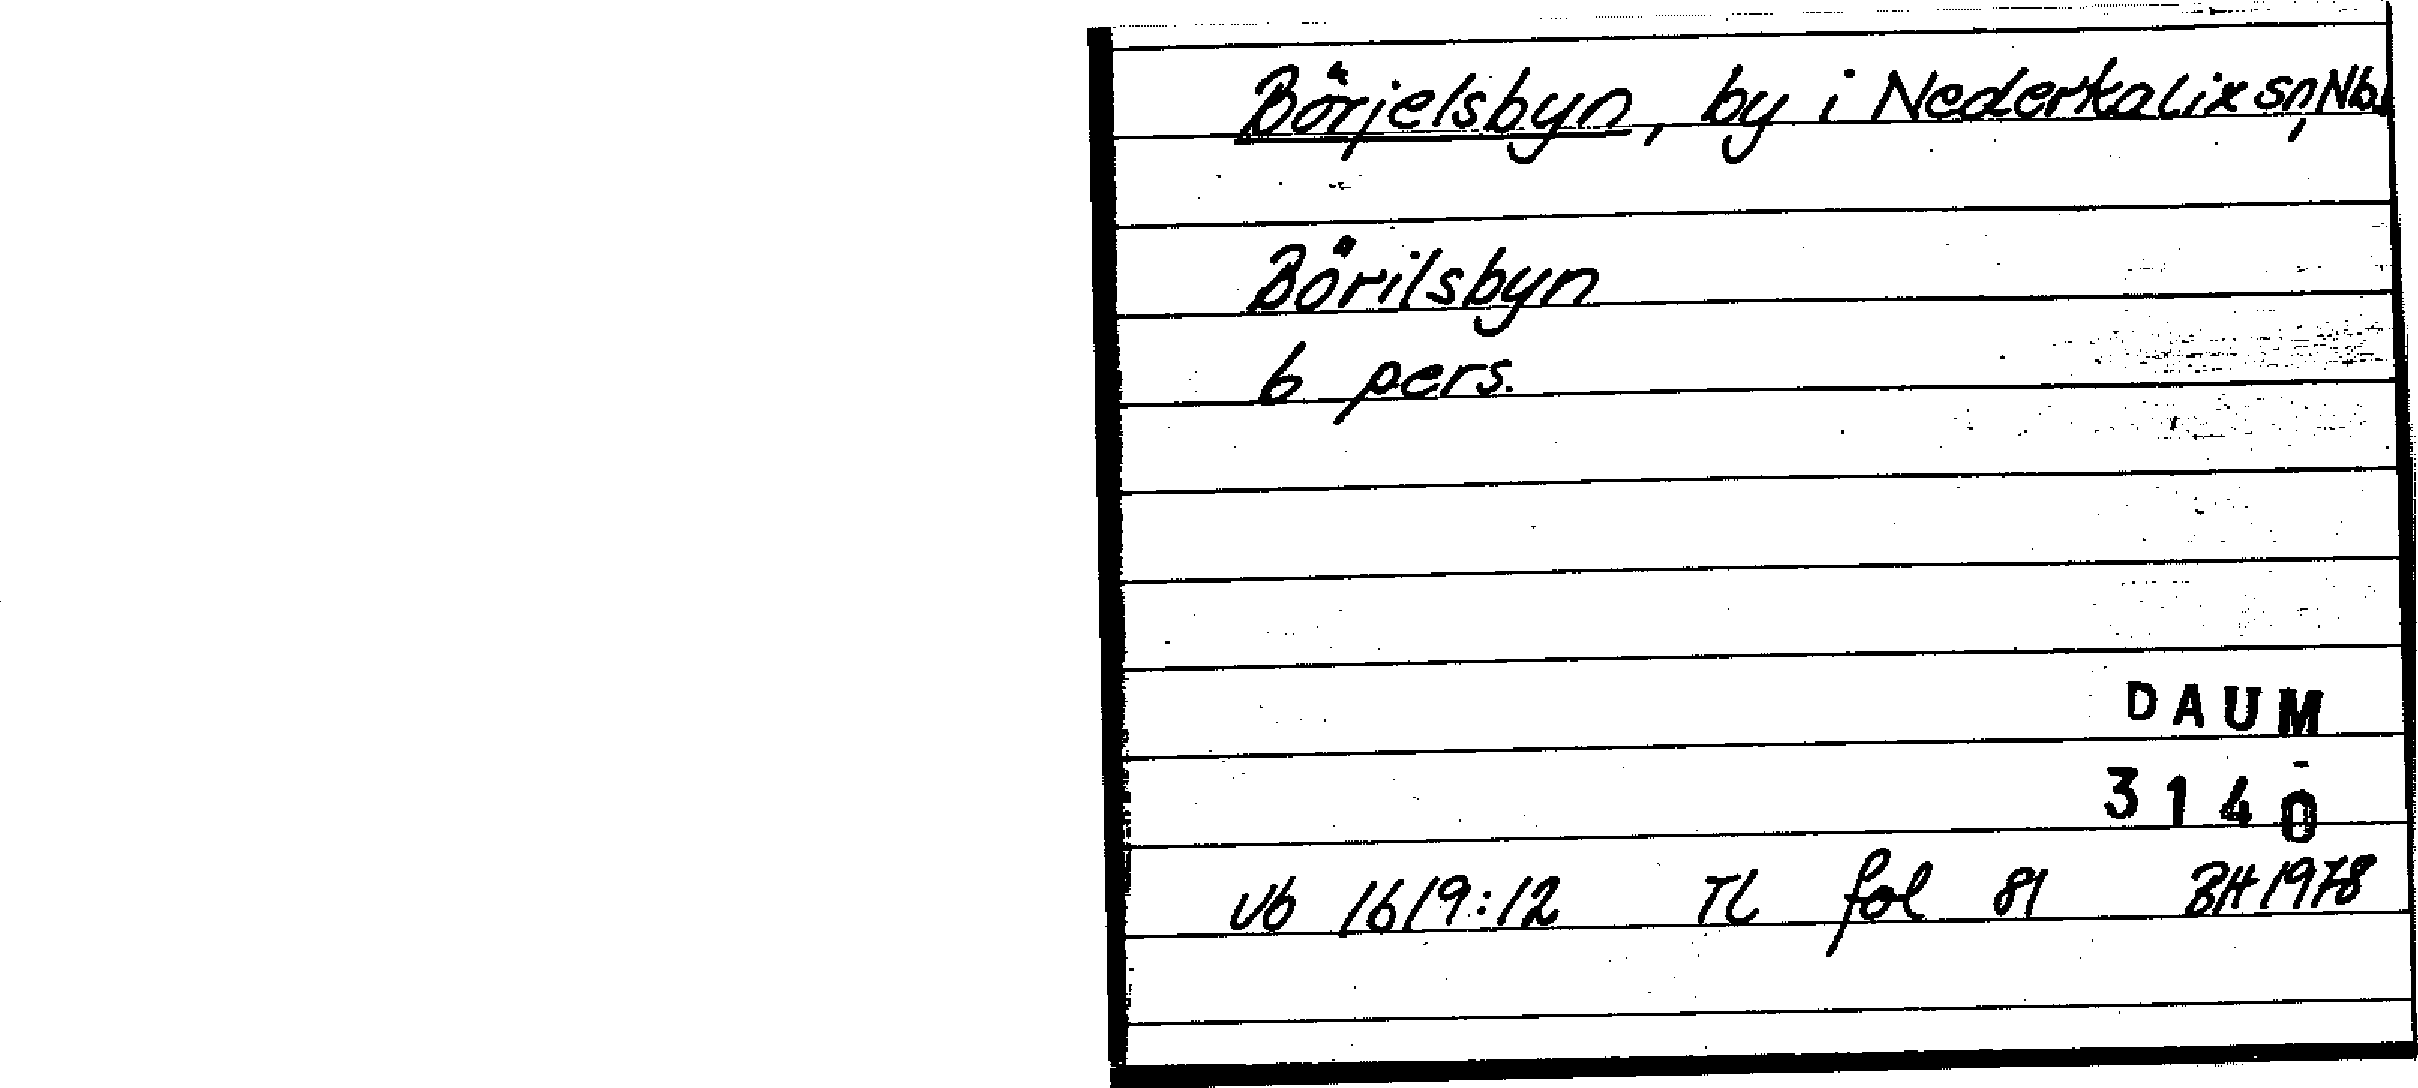 Börjelsbyn, by i Nederkalix sn, Nb.
Börilsbyn
6 pers.
DAUM
3140
Vb 1619:12 TL fol 81 BH 1978